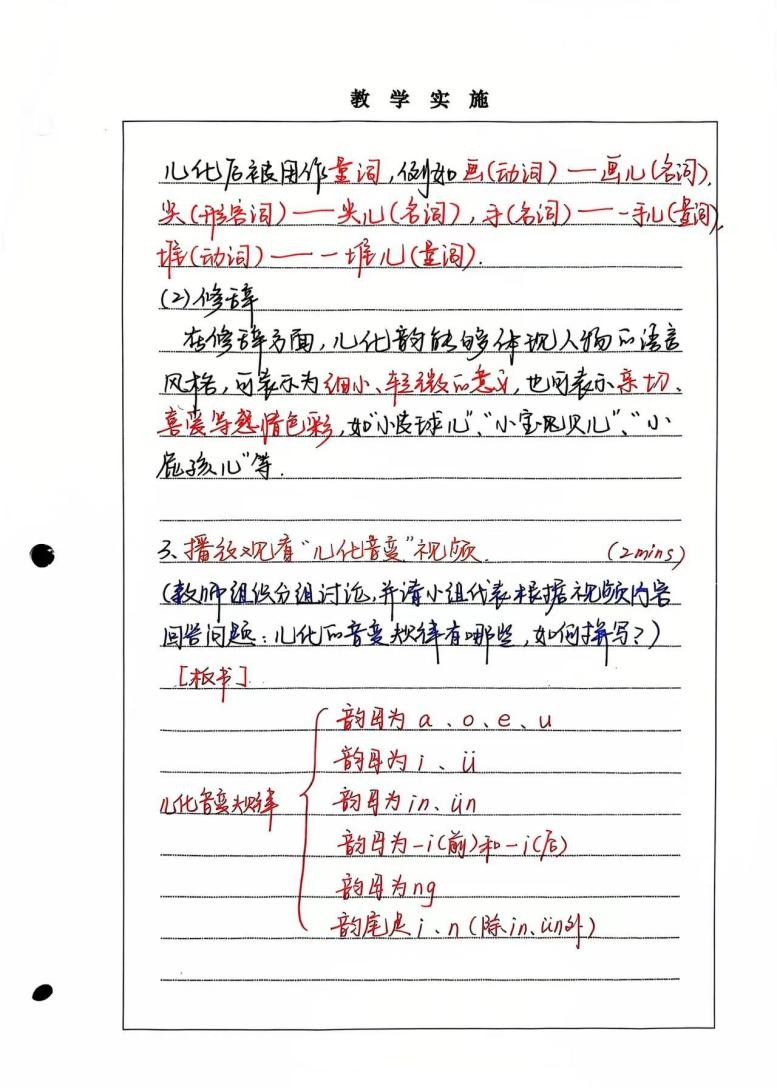 教学实施
儿化后被用作量词,例如画(动词)——画儿(名词),
尖(形容词)——尖儿(名词),手(名词)——一手儿(量词),
堆(动词)——一堆儿(量词).
(2)修辞
在修辞方面,儿化韵能够体现人物的语言
风格,可表示为细小、轻微的意义,也可表示亲切、
喜爱等感情色彩,如"小皮球儿"、"小宝贝儿"、"小
屁孩儿"等.
3、播放观看"儿化音变"视频. (2mins)
(教师组织分组讨论,并请小组代表根据视频内容
回答问题:儿化的音变规律有哪些,如何拼写?)
[板书]
韵母为a、o、e、u
韵母为i、ü
儿化音变规律 韵母为in、ün
韵母为-i(前)和-i(后)
韵母为ng
韵尾是i、n(除in、ün外)